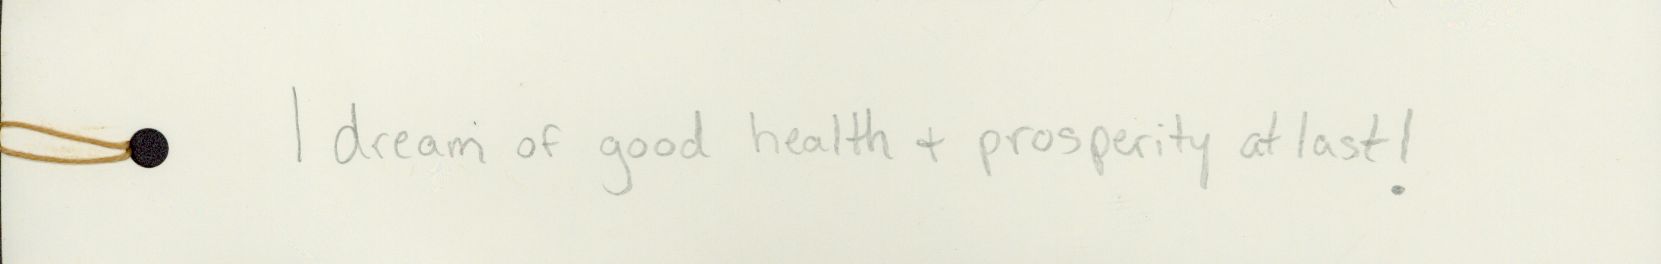 I dream of good health + prosperity at last!